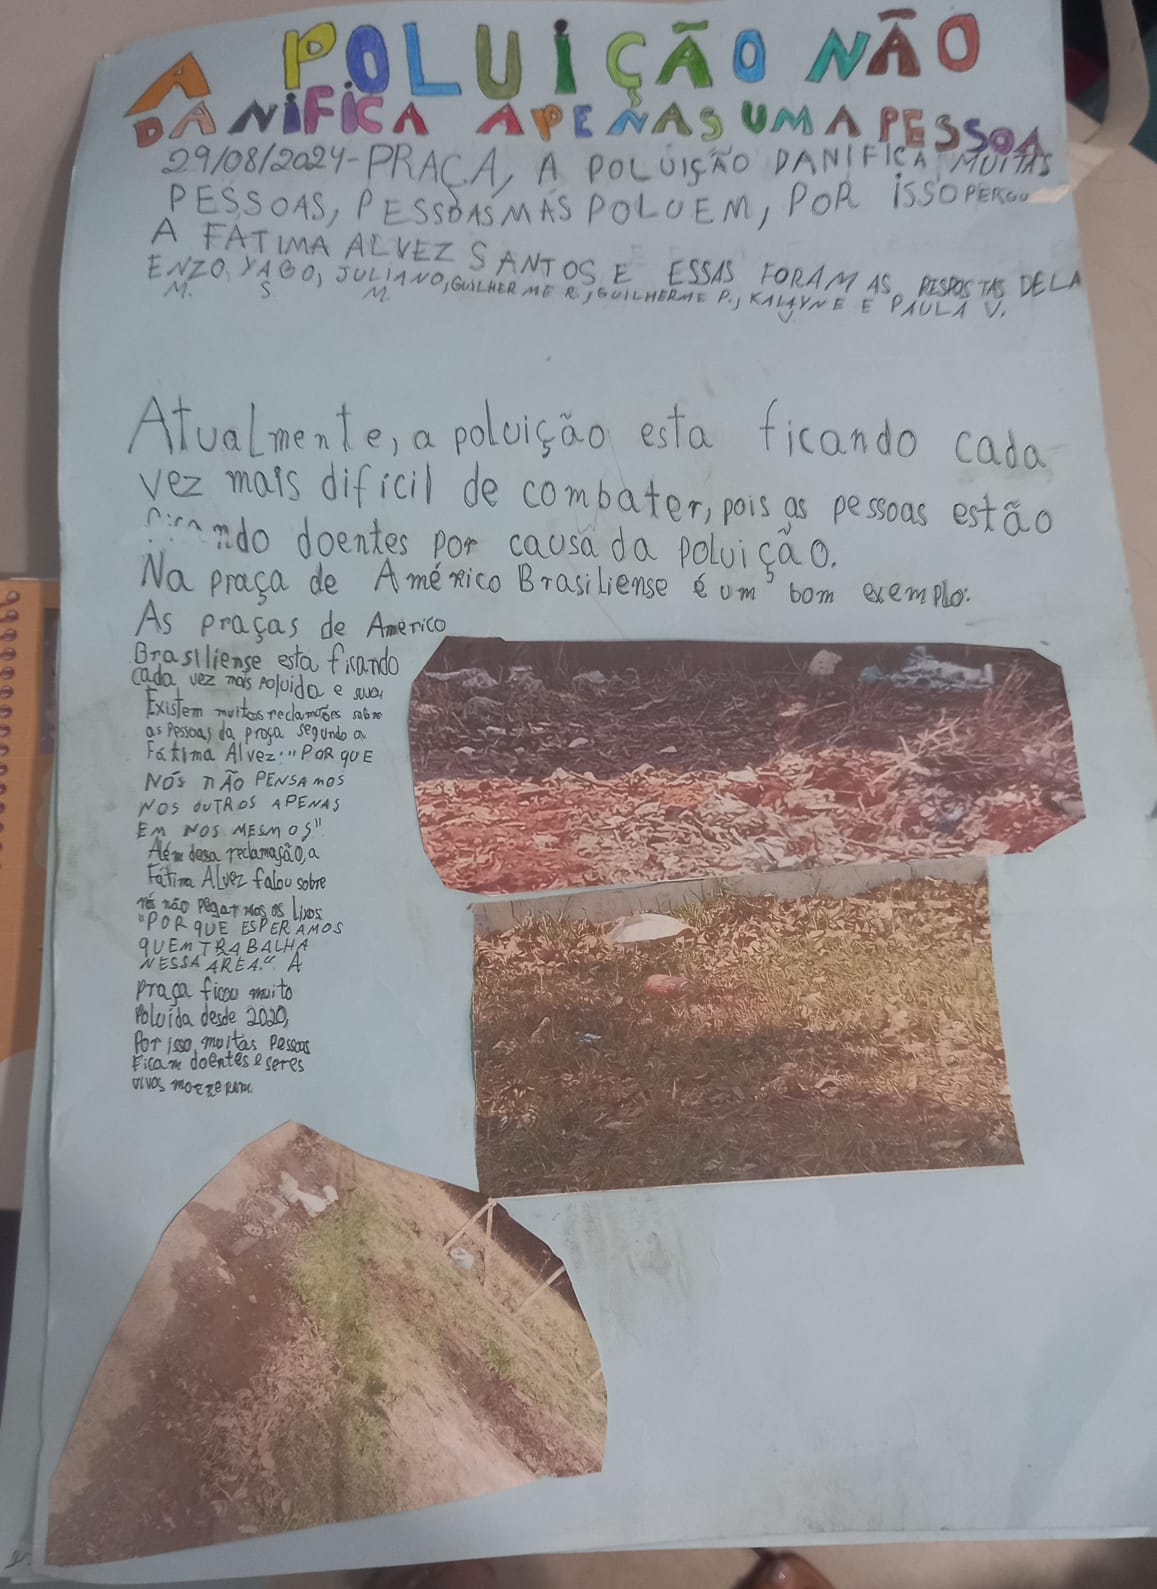 A POLUIÇÃO NÃO
DANIFICA APENAS UMA PESSOA
29/08/2024-PRAÇA, A POLUIÇÃO DANIFICA MUITAS
PESSOAS, PESSOAS MÁS POLUEM, POR ISSO
A FATIMA ALVEZ SANTOS E ESSAS FORAM AS RESPOSTAS DELA
ENZO, YAGO, JULIANO, GUILHERME R., GUILHERME P., KALAYNE E PAULA V.
M. S. M. V.
Atualmente, a poluição esta ficando cada
vez mais difícil de combater, pois as pessoas estão
ficando doentes por causa da poluição.
Na praça de Américo Brasiliense é um bom exemplo:
As praças de Américo
Brasiliense esta ficando
cada vez mais poluida e suja
Existem muitos reclamações sobre
as Pessoas da praça segundo a
Fátima Alvez: "POR QUE
NÓS NÃO PENSAMOS
NOS OUTROS APENAS
EM NOS MESMOS"
Além desa reclamação, a
Fátima Alvez falou sobre
nós não pegarmos os lixos
"POR QUE ESPERAMOS
QUEM TRABALHA
NESSA AREA." A
praça ficou muito
Poluída desde 2020,
Por isso, muitas pessoas
Ficam doentes e seres
vivos